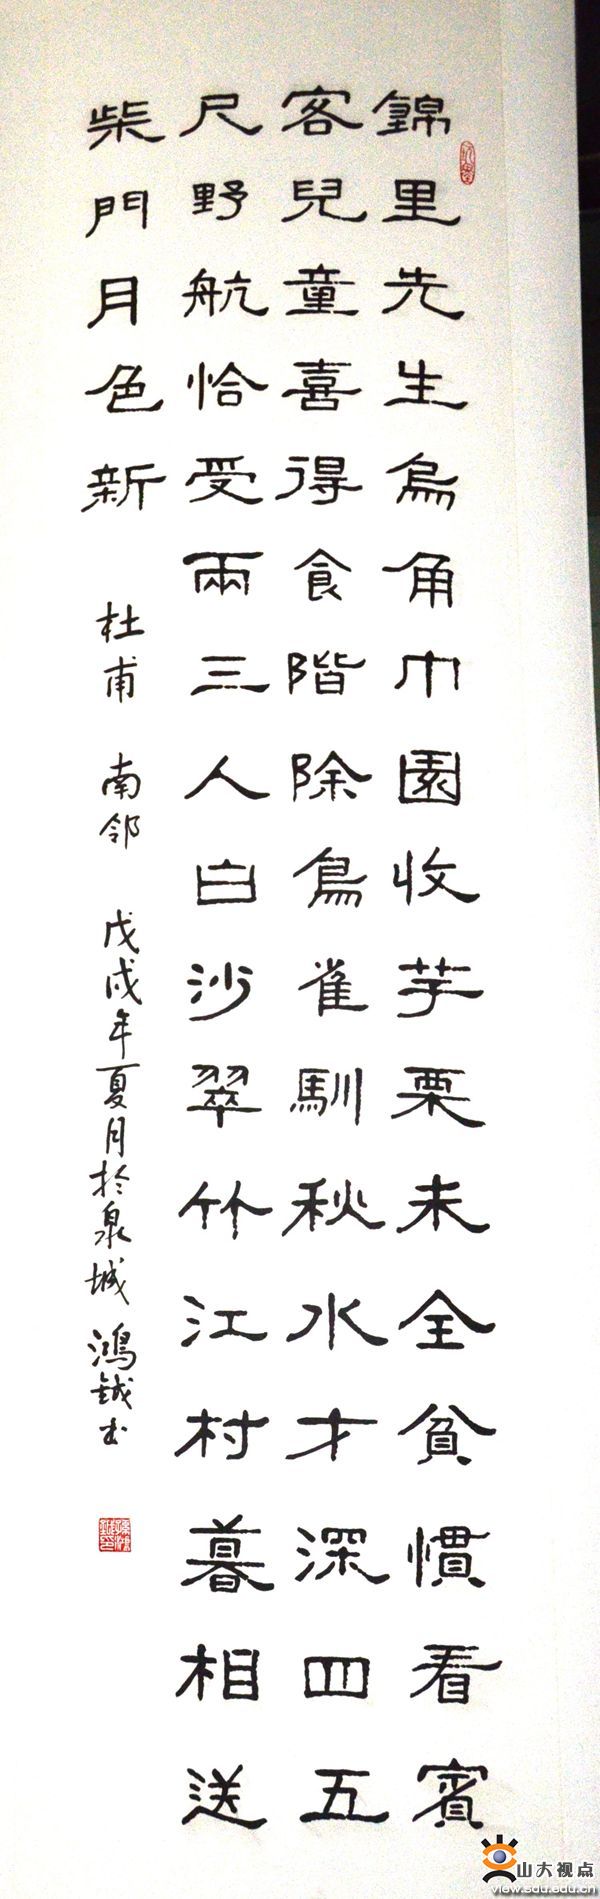 錦里先生烏角巾園收芋栗未全貧慣看賓
客兒童喜得食階除鳥雀馴秋水才深四五
尺野航恰受兩三人白沙翠竹江村暮相送
柴門月色新
杜甫 南邻 戊戌年夏月於泉城 鴻鉞书
山大视点
view.sdu.edu.cn